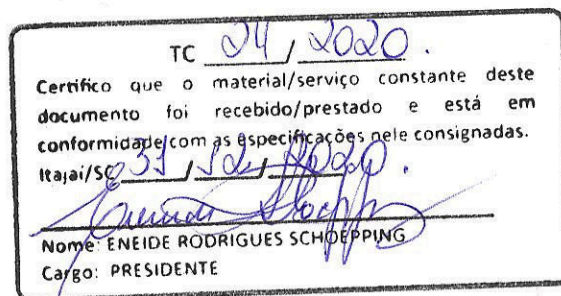 TC 24 / 2020.
Certifico que o material/serviço constante deste
documento foi recebido/prestado e está em
conformidade com as especificações nele consignadas.
Itajaí/SC 31 / 12 / 2020.
Nome: ENEIDE RODRIGUES SCHOEPPING
Cargo: PRESIDENTE